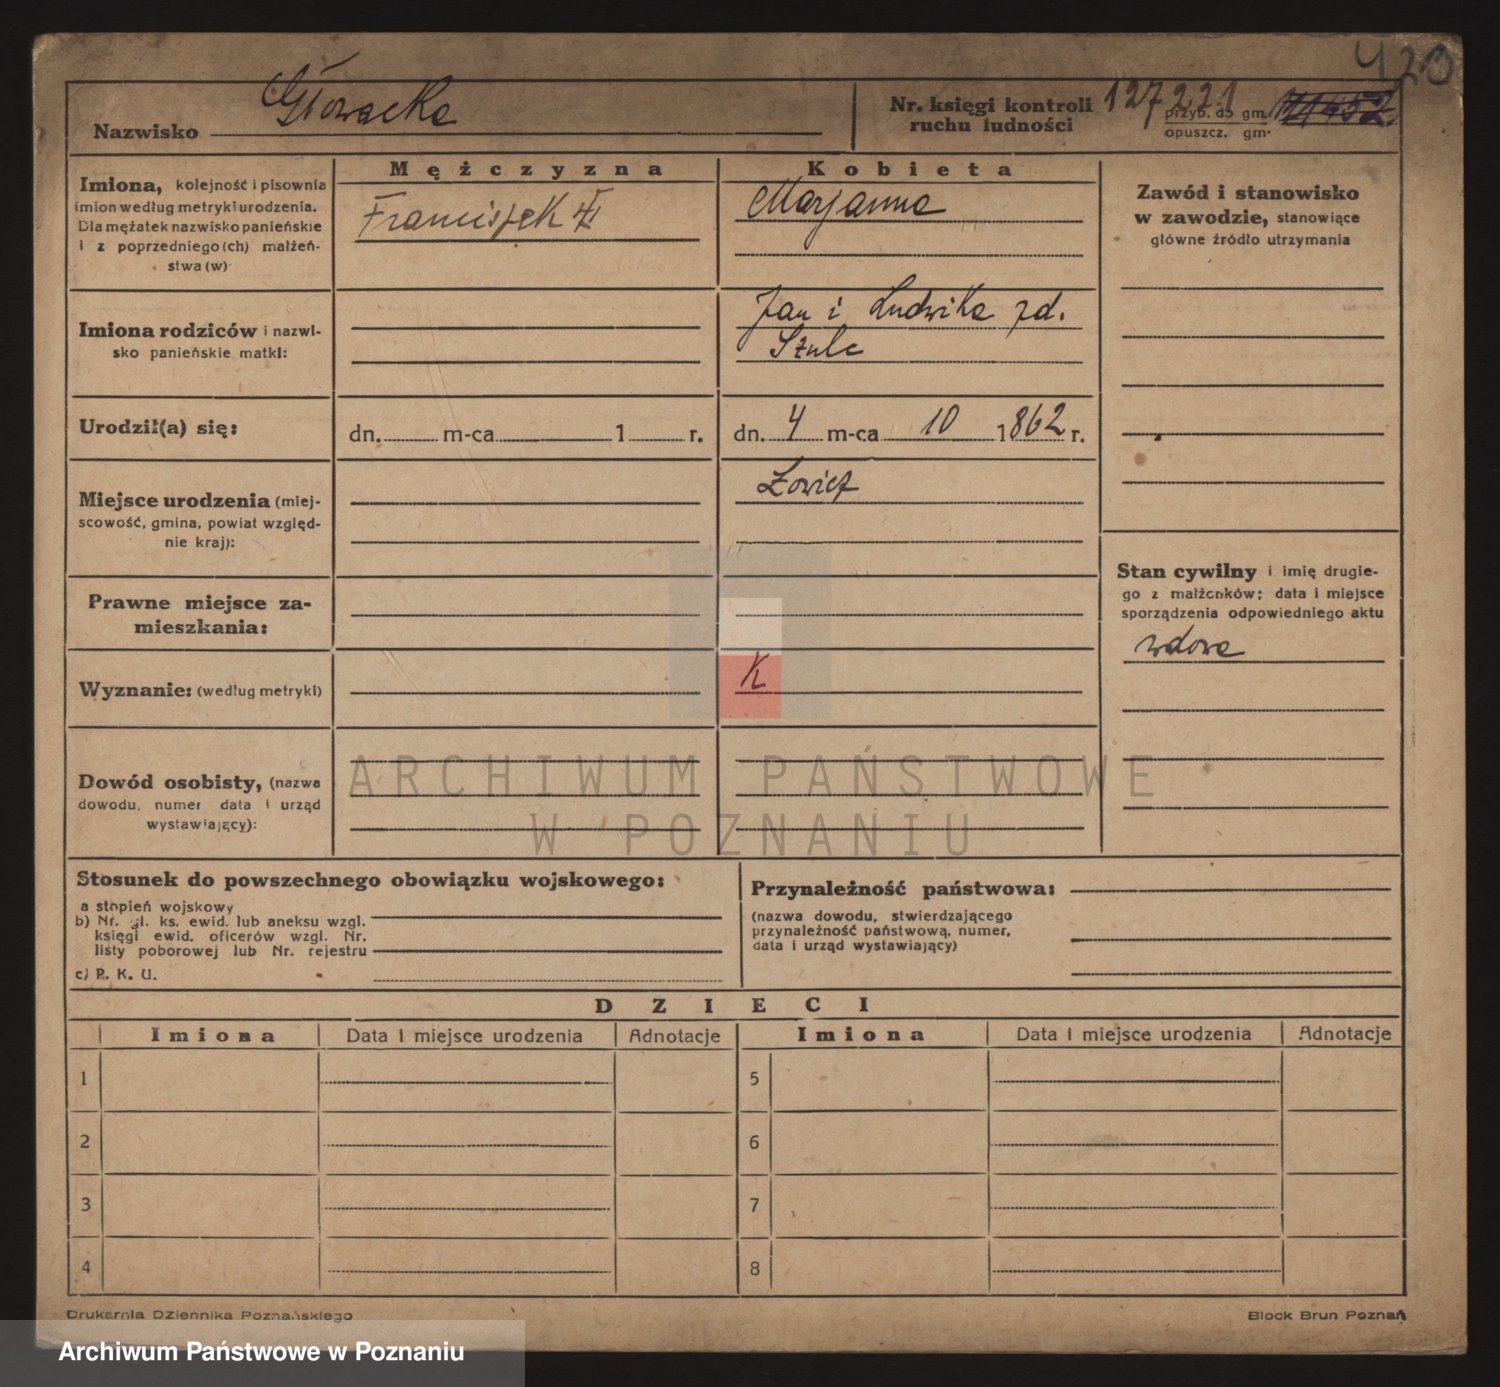 420
Nazwisko Głowacka
Nr. księgi kontroli ruchu ludności 127221 przyb. do gm. opuszcz. gm.
Mężczyzna
Kobieta
Imiona, kolejność i pisownia
imion według metryki urodzenia.
Dla mężatek nazwisko panieńskie
i z poprzedniego (ch) małżeń-
stwa (w)
Franciszek
Marjanna
Zawód i stanowisko
w zawodzie, stanowiące
główne źródło utrzymania
Imiona rodziców i nazwi-
sko panieńskie matki:
Jan i Ludwika zd.
Szulc
Urodził(a) się:
dn. m-ca 1 r.
dn. 4 m-ca 10 1862 r.
Miejsce urodzenia (miej-
scowość, gmina, powiat względ-
nie kraj):
Łowicz
Stan cywilny i imię drugie-
go z małżonków; data i miejsce
sporządzenia odpowiedniego aktu
wdowa
Prawne miejsce za-
mieszkania:
Wyznanie: (według metryki)
K
Dowód osobisty, (nazwa
dowodu, numer data i urząd
wystawiający):
ARCHIWUM PAŃSTWOWE
W POZNANIU
Stosunek do powszechnego obowiązku wojskowego:
a stopień wojskowy
b) Nr. gl. ks. ewid. lub aneksu wzgl.
księgi ewid. oficerów wzgl. Nr.
listy poborowej lub Nr. rejestru
c) P. K. U.
Przynależność państwowa:
(nazwa dowodu, stwierdzającego
przynależność państwową, numer,
data i urząd wystawiający)
DZIECI
Imiona Data i miejsce urodzenia Adnotacje Imiona Data i miejsce urodzenia Adnotacje
1 5
2 6
3 7
4 8
Drukarnia Dziennika Poznańskiego
Block Brun Poznań
Archiwum Państwowe w Poznaniu